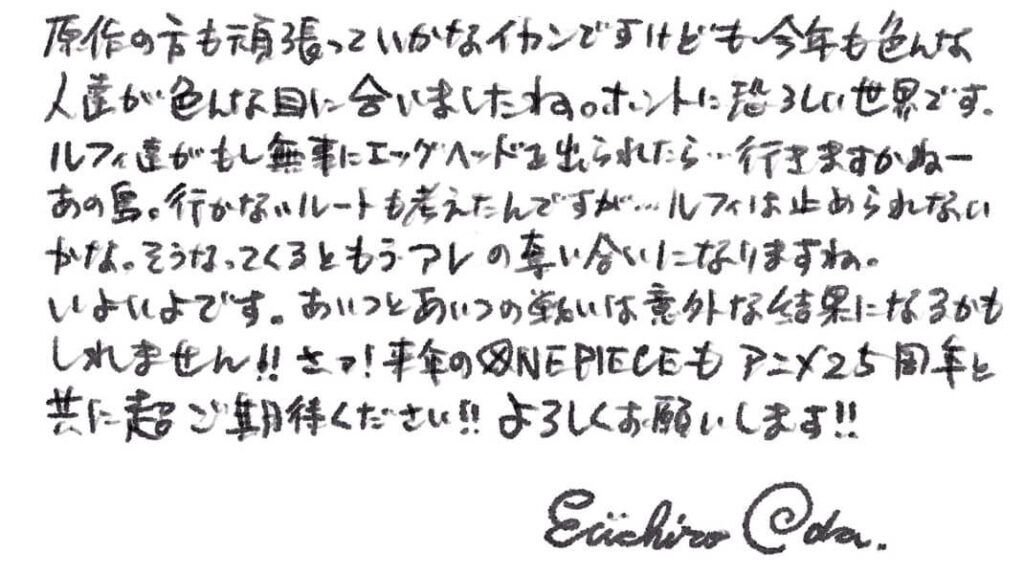 原作の方も頑張っていかなイカンですけども今年も色んな
人達が色んな目に合いましたね。ホントに恐ろしい世界です。
ルフィ達がもし無事にエッグヘッドを出られたら…行きますかねー
あの島。行かないルートも考えたんですが…ルフィは止められない
かな。そうなってくるともうアレの奪い合いになりますね。
いよいよです。あいつとあいつの戦いは意外な結果になるかも
しれません!!さァ!来年のONE PIECEもアニメ25周年と
共に超ご期待ください!!よろしくお願いします!!
Eiichiro Oda.